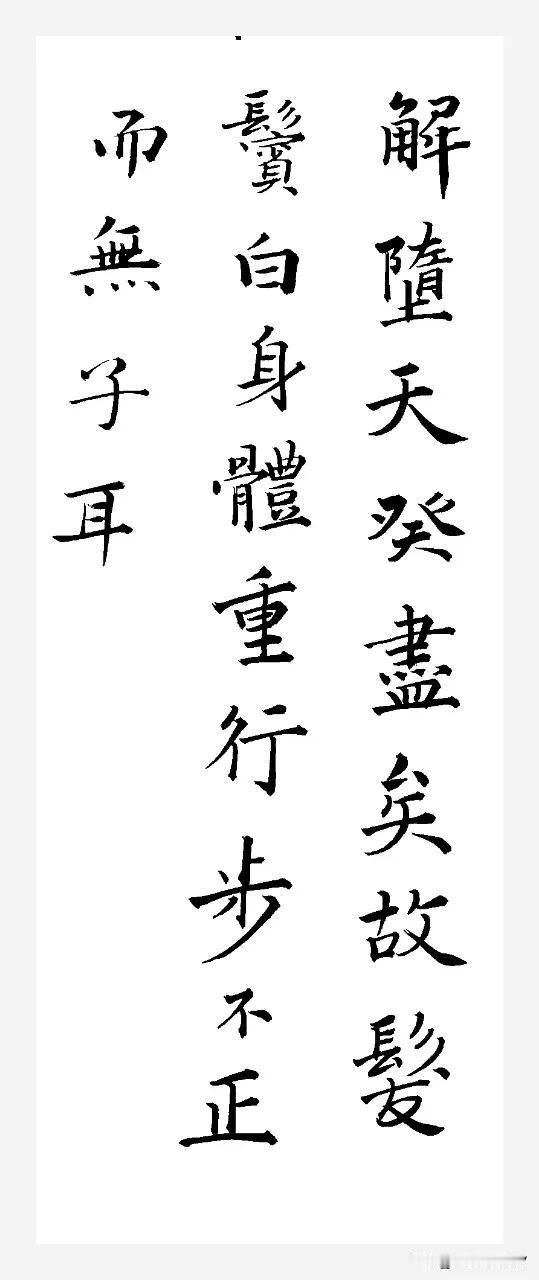 解墮天癸盡矣故髮
鬢白身體重行步不正
而無子耳